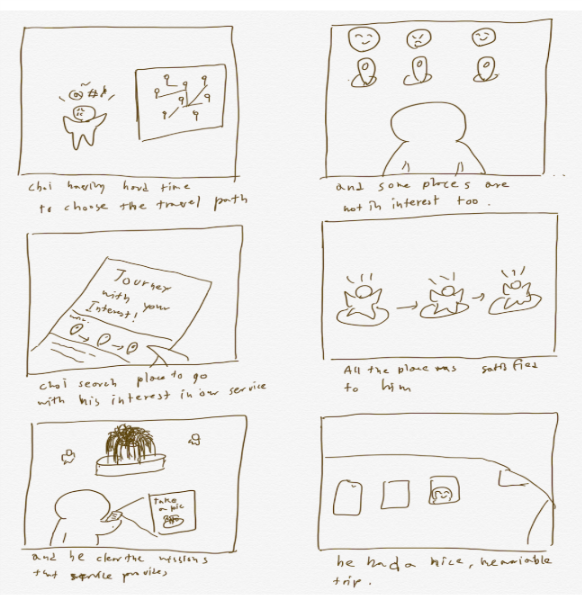 choi having hard time
to choose the travel path
and some places are
not in interest too.
Journey
with your
Interest!
choi search place to go
with his interest in our service
All the place was satisfied
to him
take
a pic
and he clear the missions
that service provides
he had a nice, memoriable
trip.